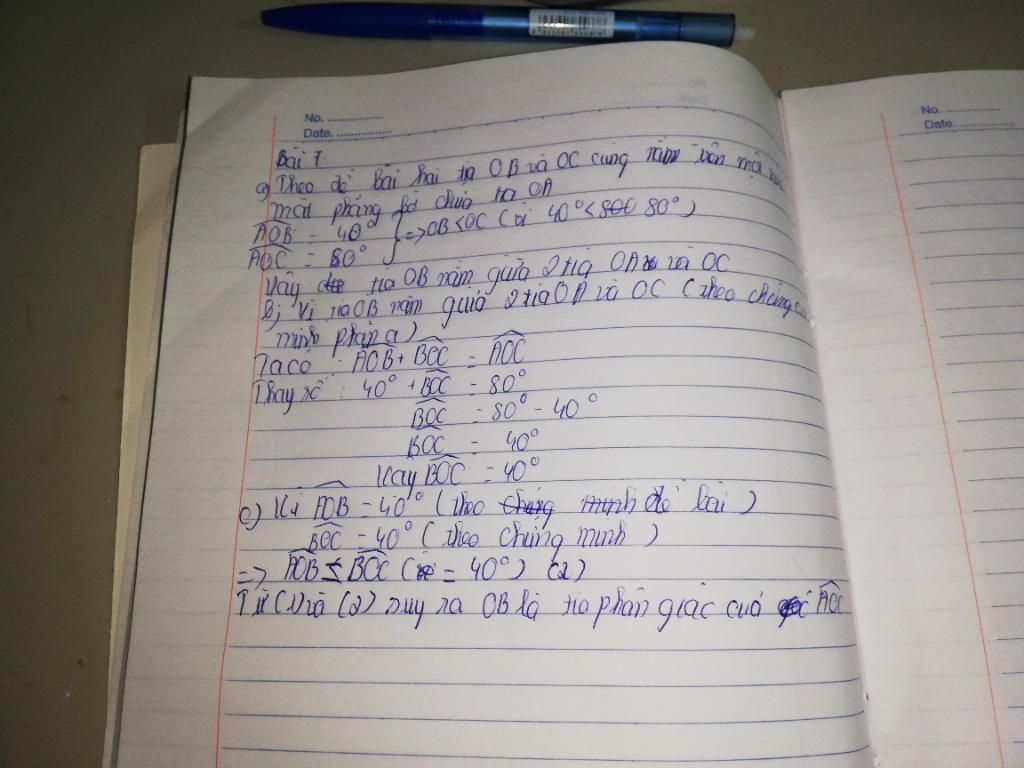 No. ...............
Date. ...............
No. ...............
Date. ...............
Bài 7
a) Theo đề bài hai tia OB và OC cùng nằm bên một nửa
mặt phẳng bờ chứa tia OA
AOB = 40°
AOC = 80°
} => OB < OC (vì 40° < 80°)
Vậy tia OB nằm giữa 2 tia OA và OC
b) Vì tia OB nằm giữa 2 tia OA và OC (theo chứng
minh phần a)
Ta có : AOB + BOC = AOC
Thay số : 40° + BOC = 80°
BOC = 80° - 40°
BOC = 40°
Vậy BOC = 40°
c) Vì AOB = 40° (theo đề bài)
BOC = 40° (theo chứng minh)
=> AOB = BOC (= 40°) (2)
Từ (1) và (2) suy ra OB là tia phân giác của AOC